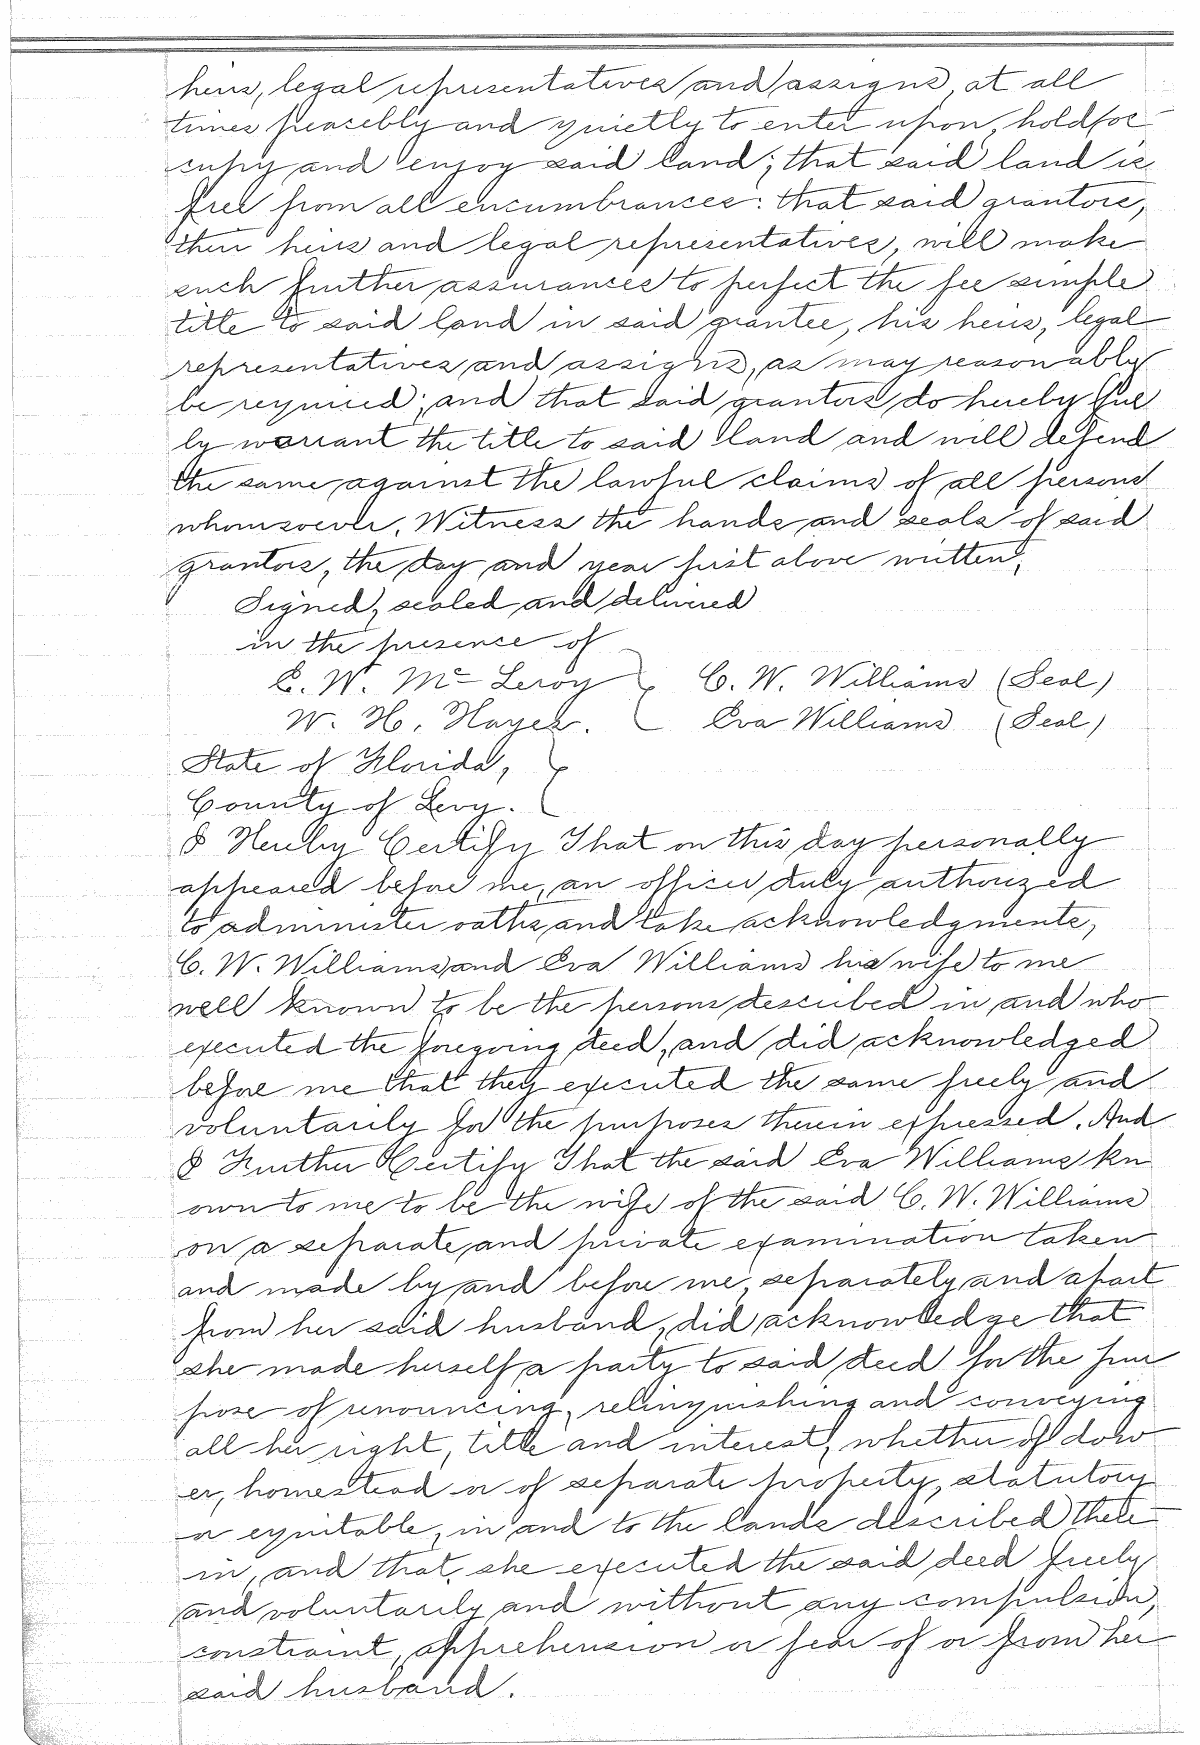 heirs, legal representatives and assigns, at all
times peacebly and quietly to enter upon, hold, oc
cupy and enjoy said land; that said land is
free from all encumbrances: that said grantors,
their heirs and legal representatives, will make
such further assurances to perfect the fee simple
title to said land in said grantee, his heirs, legal
representatives and assigns, as may reasonably
be required; and that said grantors do hereby ful
ly warrant the title to said land and will defend
the same against the lawful claims of all persons
whomsoever. Witness the hands and seals of said
grantors, the day and year first above written.
Signed, sealed and delivered
in the presence of
E. W. Mc Leroy } C. W. Williams (Seal)
W. H. Hayes. Eva Williams (Seal)
State of Florida, }
County of Levy.
I Hereby Certify That on this day personally
appeared before me, an officer duly authorized
to administer oaths and take acknowledgments,
C. W. Williams and Eva Williams his wife to me
well known to be the persons described in and who
executed the foregoing deed, and did acknowledged
before me that they executed the same freely and
voluntarily for the purposes therein expressed. And
I Further Certify That the said Eva Williams kn
own to me to be the wife of the said C. W. Williams
on a separate and private examination taken
and made by and before me, separately and apart
from her said husband, did acknowledge that
she made herself a party to said deed for the pur
pose of renouncing, relinquishing and conveying
all her right, title and interest, whether of dow
er, homestead or of separate property, statutory
or equitable, in and to the lands described there
in, and that she executed the said deed freely
and voluntarily and without any compulsion,
constraint, apprehension or fear of or from her
said husband.